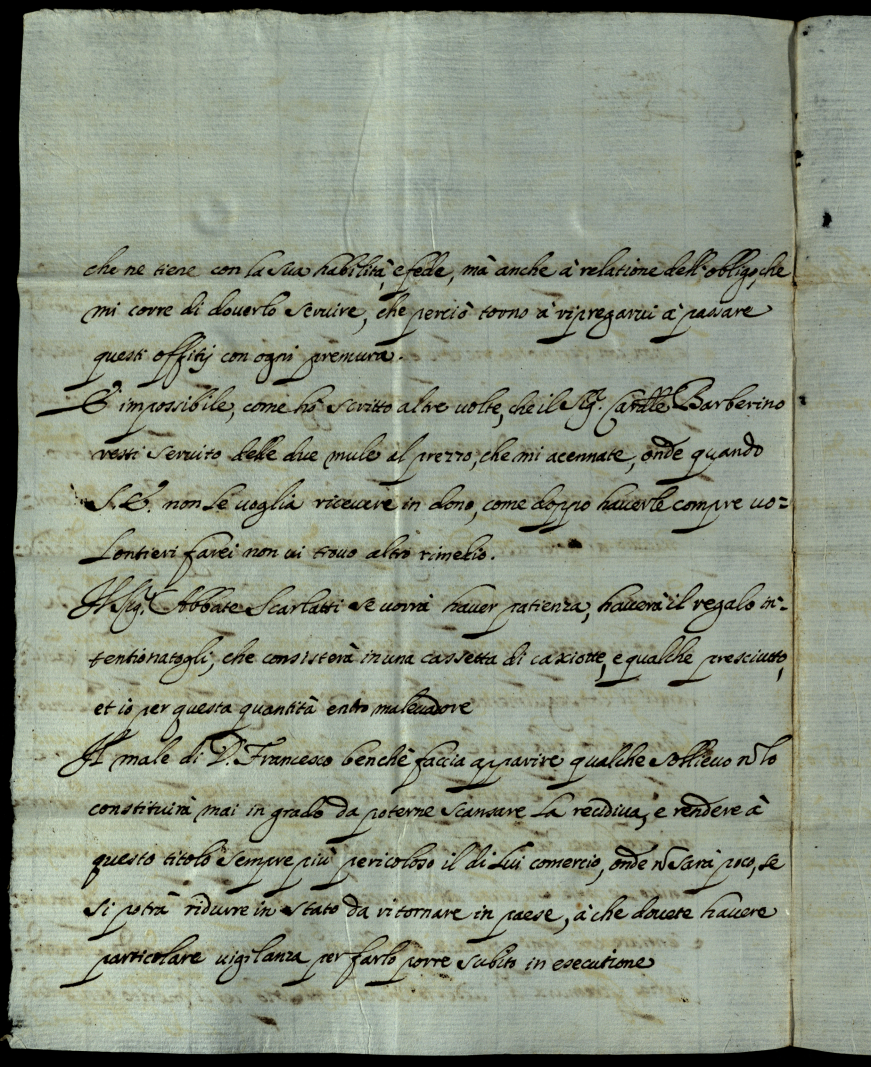 che ne tiene con la sua habilità, e fede, mà anche à relatione dell'obligo, che
mi corre di douerlo seruire, che perciò torno à ripregarui à passare
questi offitij con ogni premura.
È impossibile, come hò scritto altre uolte, che il Sig.r Cardle Barberino
resti seruito delle due mule al prezzo, che mi acennate, onde quando
S. E. non le uoglia riceuere in dono, come doppo hauerle compre uo=
lontieri farei non ui trouo altro rimedio.
Il Sig.r Abbate Scarlatti se uorrà hauer patienza, hauerà il regalo in-
tentionatogli, che consisterà in una cassetta di caciotte, e qualche presciutto,
et io per questa quantità entro maleuadore
Il male di D. Francesco benchè faccia apparire qualche sollieuo ñ lo
constituirà mai in grado da poterne scansare la recidiua, e rendere à
questo titolo sempre più pericoloso il di lui comercio, onde ñ sarà poco, se
si potrà ridurre in stato da ritornare in paese, à che douete hauere
particolare uigilanza per farlo porre subito in esecutione